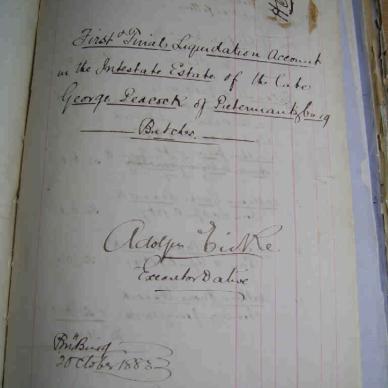 First & Final Liquidation Account
in the Intestate Estate of the late
George Peacock of Pietermaritzburg
Butcher.
Adolph
Executor Dative
PMBurg
October 1883